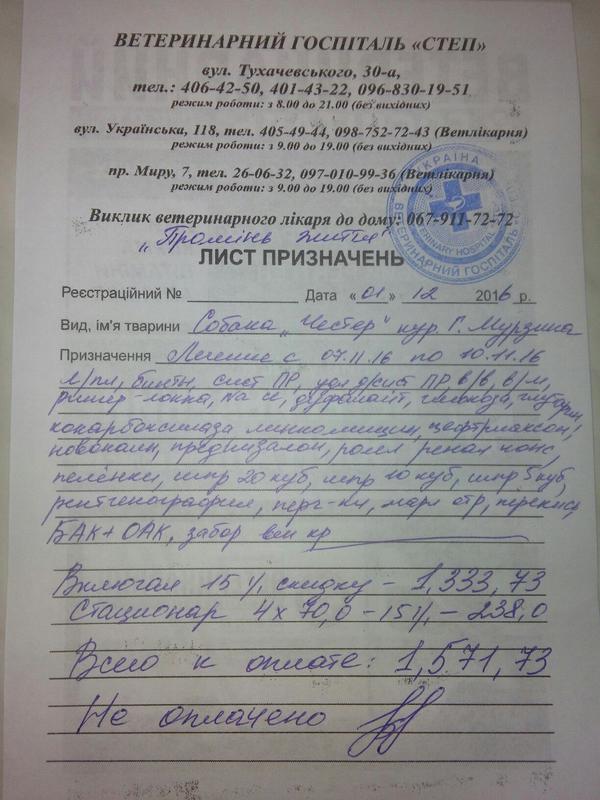 ВЕТЕРИНАРНИЙ ГОСПІТАЛЬ «СТЕП»
вул. Тухачевського, 30-а,
тел.: 406-42-50, 401-43-22, 096-830-19-51
режим роботи: з 8.00 до 21.00 (без вихідних)
вул. Українська, 118, тел. 405-49-44, 098-752-72-43 (Ветлікарня)
режим роботи: з 9.00 до 19.00 (без вихідних)
пр. Миру, 7, тел. 26-06-32, 097-010-99-36 (Ветлікарня)
режим роботи: з 9.00 до 19.00 (без вихідних)
УКРАЇНА
VETERINARY HOSPITAL
ВЕТЕРИНАРНИЙ ГОСПІТАЛЬ
Виклик ветеринарного лікаря до дому: 067-911-72-72
„Промінь життя"
ЛИСТ ПРИЗНАЧЕНЬ
Реєстраційний № Дата «01» 12 2016 р.
Вид, ім'я тварини Собака „Честер" кур. Г. Мурзина
Призначення Лечение с 07.11.16 по 10.11.16
л/пл, бинты, сист ПР, удл д/сист ПР, в/в, в/м,
рингер-локка, Na cl, дуфалайт, глюкоза,
кокарбоксилаза линкомицин, цефтриаксон,
новокаин, преднизалон, роял ренал конс,
пелёнки, шпр 20 куб, шпр 10 куб, шпр 5 куб,
рентгенография, перч-ки, марл отр, перекись
БАК + ОАК, забор вен кр
Включая 15 % скидку - 1,333,73
Стационар 4 х 70,0 - 15 % - 238,0
Всего к оплате: 1,571,73
Не оплачено